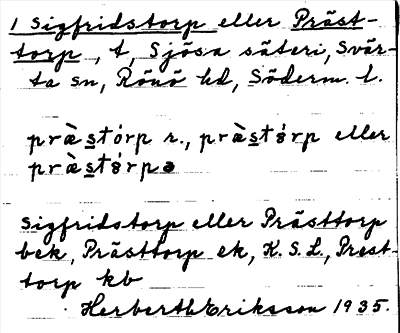 1 Sigfridstorp eller Präst-
torp, t, Sjösa säteri, Svär-
ta sn, Rönö hd, Söderm. l.
præ̀stórp r., præ̀stȯ́rp eller
præ̀stȯ́rpə
Sigfridstorp eller Prästtorp
bek, Prästtorp ek, K.S.L., Prest-
torp kb
Herberth Eriksson 1935.